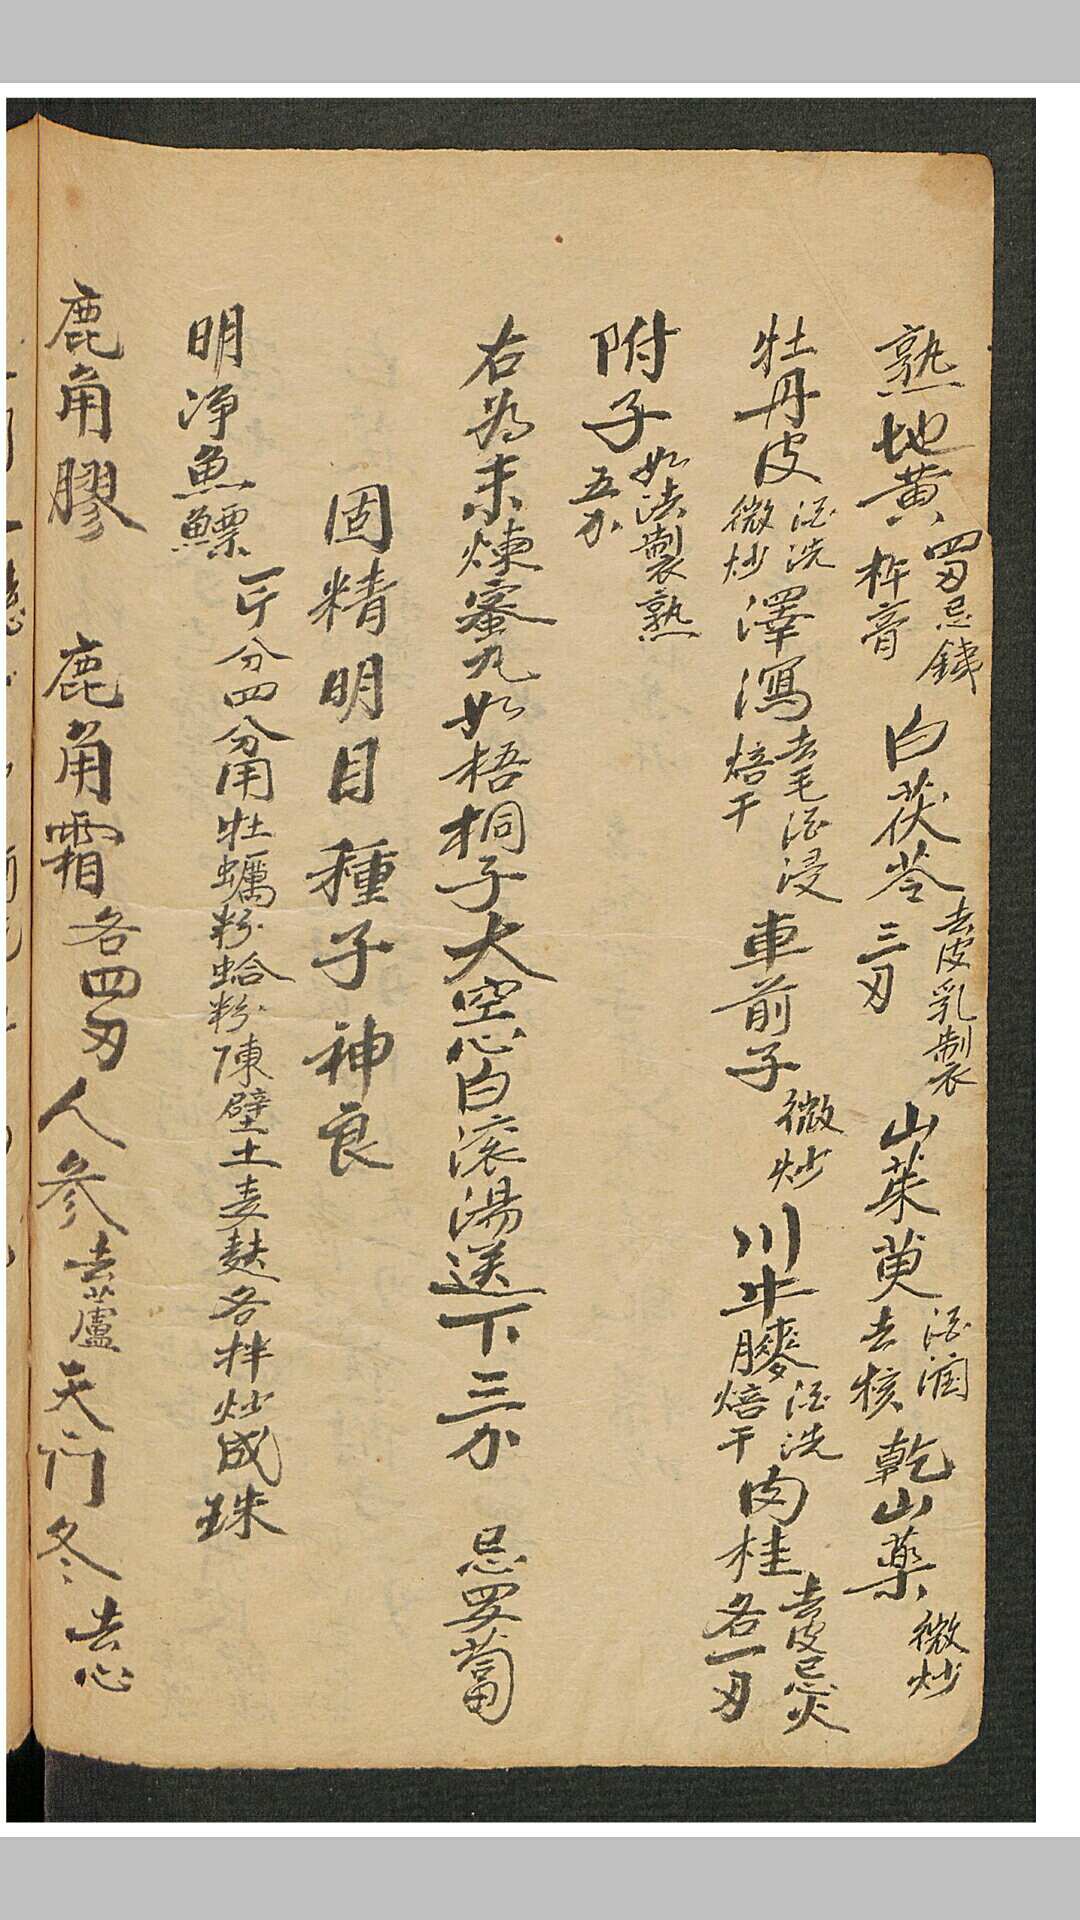 熟地黄 四刄忌鉄 杵膏 白茯苓 去皮乳製 三刄 山茱萸 酒润 去核 乾山藥 微炒
牡丹皮 酒洗 微炒 澤瀉 去毛酒浸 焙干 車前子 微炒 川牛膝 酒洗 焙干 肉桂 去皮忌火 各一刄
附子 如法製熟 五分
右為末煉蜜丸如梧桐子大空心白滚湯送下三分 忌罗蔔
固精明目種子神良
明净魚鰾 一斤分四分用牡蠣粉蛤粉陳壁土麦麸各拌炒成珠
鹿角膠 鹿角霜各四刄人参去蘆天门冬去心